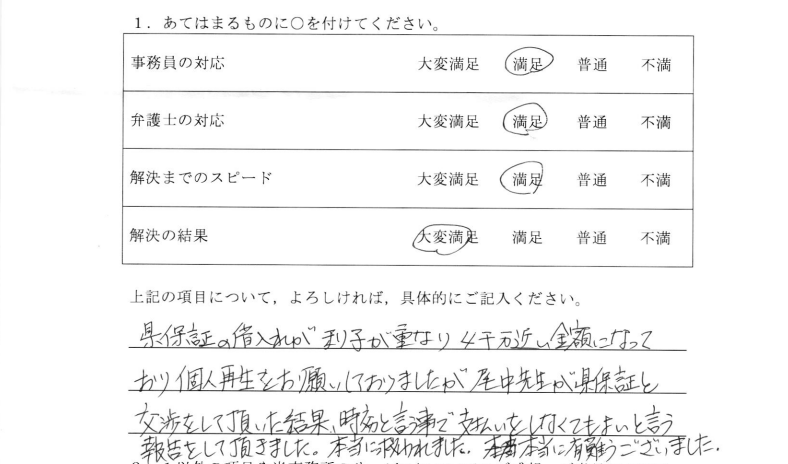 1．あてはまるものに○を付けてください。
事務員の対応 大変満足 満足 普通 不満
弁護士の対応 大変満足 満足 普通 不満
解決までのスピード 大変満足 満足 普通 不満
解決の結果 大変満足 満足 普通 不満
上記の項目について，よろしければ，具体的にご記入ください。
県保証の借入れが利子が重なり4千万近い金額になって
おり個人再生をお願いしておりましたが尾中先生が県保証と
交渉をして頂いた結果、時効と言う事で支払いをしなくてもよいと言う
報告をして頂きました。本当に救われました。本当に有難うございました。